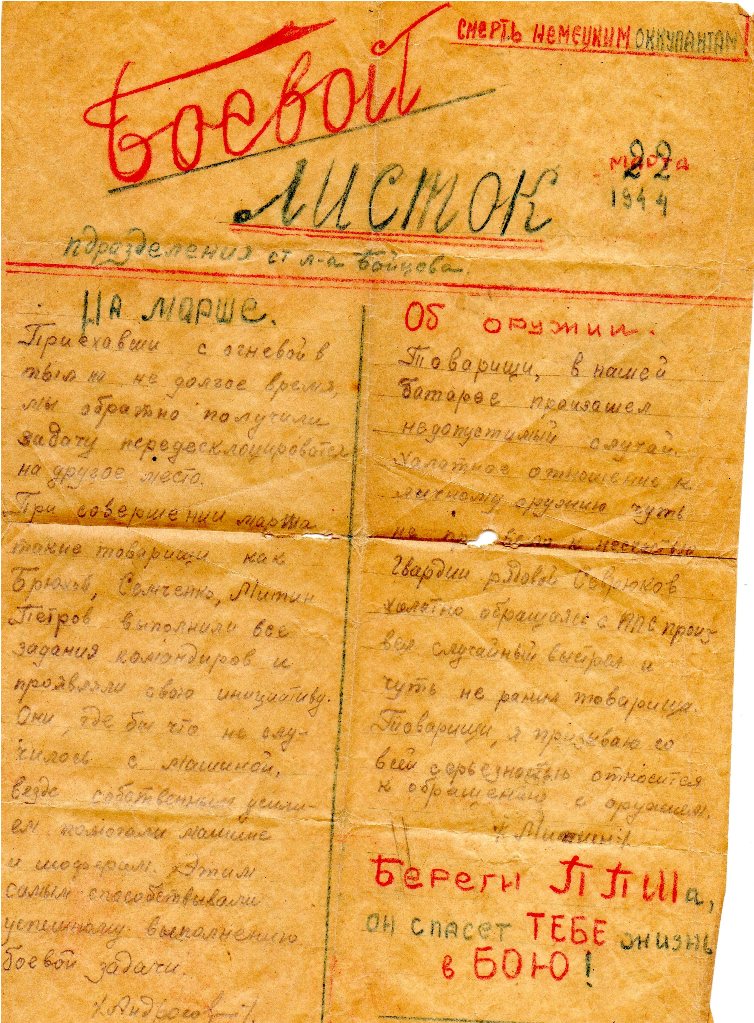 СМЕРТЬ НЕМЕЦКИМ ОККУПАНТАМ!
Боевой
ЛИСТОК
22
марта
1944
пдразделения ст л-а Бойцова.
НА МАРШЕ.
Приехавши с огневой в
тыл не долгое время,
мы обратно получили
задачу
на другое место.
При совершении марша
такие товарищи как
Брюхов, Семченко, Митин
Петров выполнили все
задания командиров и
проявляли свою инициативу.
Они, где бы что не слу-
чилось с машиной,
везде собственным усили-
ем помогали машине
и шоферам. Этим
самым способствывали
успешному выполнению
боевой задачи.
Об оружии.
Товарищи, в нашей
батарее произашел
недопустимый случай.
Халатное отношение к
личному оружию чуть
не к
Гвардии рядовой Севрюков
халатно обращаясь с ППС произ-
вел случайный выстрел и
чуть не ранил товарища.
Товарищи, я призываю со
всей серьезностью относится
к обращению с оружием.
Береги ППШа,
он спасет ТЕБЕ жизнь
в БОЮ!